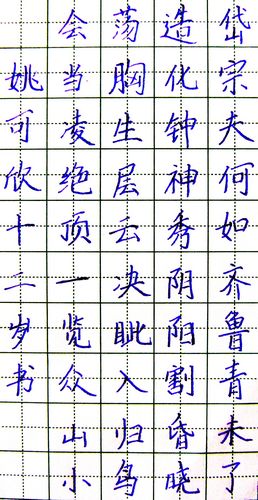 岱宗夫何如齐鲁青未了
造化钟神秀阴阳割昏晓
荡胸生层云决眦入归鸟
会当凌绝顶一览众山小
姚可欣十二岁书